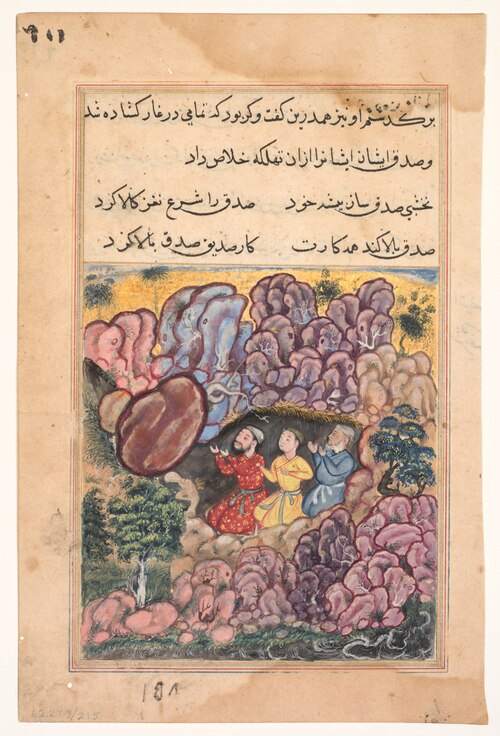 او نیز همدرین گفت وکو بود که تمامی در غار کشاده شد
وصدق ایشان ایشانرا ازان تهلکه خلاص داد
نخشبی صدق ساز پیشه خود صدق را شرع نغز کالا کرد
صدق بالا کند همه کارت کار صدیق صدق بالا کرد
181
62.279/215